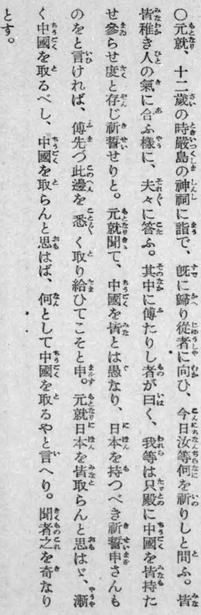 〇元就、十二歲の時嚴島の神祠に詣で、旣に歸り從者に向ひ、今日汝等何を祈りしと問ふ。皆
皆稚き人の氣に合ふ樣に、夫々に答ふ。其中に傅たりし者が曰く、我等は只殿に中國を皆持た
せ參らせ度と存じ祈誓せりと。元就聞て、中國を皆とは愚なり、日本を持つべき祈誓申さんも
のをと言ければ、傅先づ此邊を悉く取り給ひてこそと申す。元就日本を皆取らんと思はゞ、漸
く中國を取るべし、中國を取らんと思はば、何として中國を取るやと言へり。聞者之を奇なり
とす。